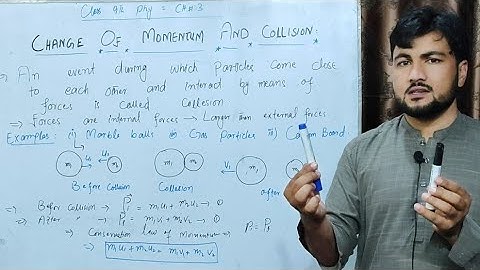 Class 9th phy = CH#:3
CHANGE OF MOMENTUM AND COLLISION:
⇒ An event during which Particles come close
to each other and interact by means of
forces is called Collesion
→ Forces are internal forces → Larger than external forces
Examples: i) Marble balls ii) Gas Particles iii) Carrom Board:
m₁ U₁ m₂
m₁ m₂
V₁ m₁
Before Collision Collision after
⇒ Before Collision → P⃗ᵢ = m₁u₁ + m₂u₂ → ①
⇒ After " → P⃗f = m₁v₁ + m₂v₂ → ①
⇒ Conservation law of momentum ⇒ Pᵢ = Pf
⇒ m₁u₁ + m₂u₂ = m₁v₁ + m₂v₂